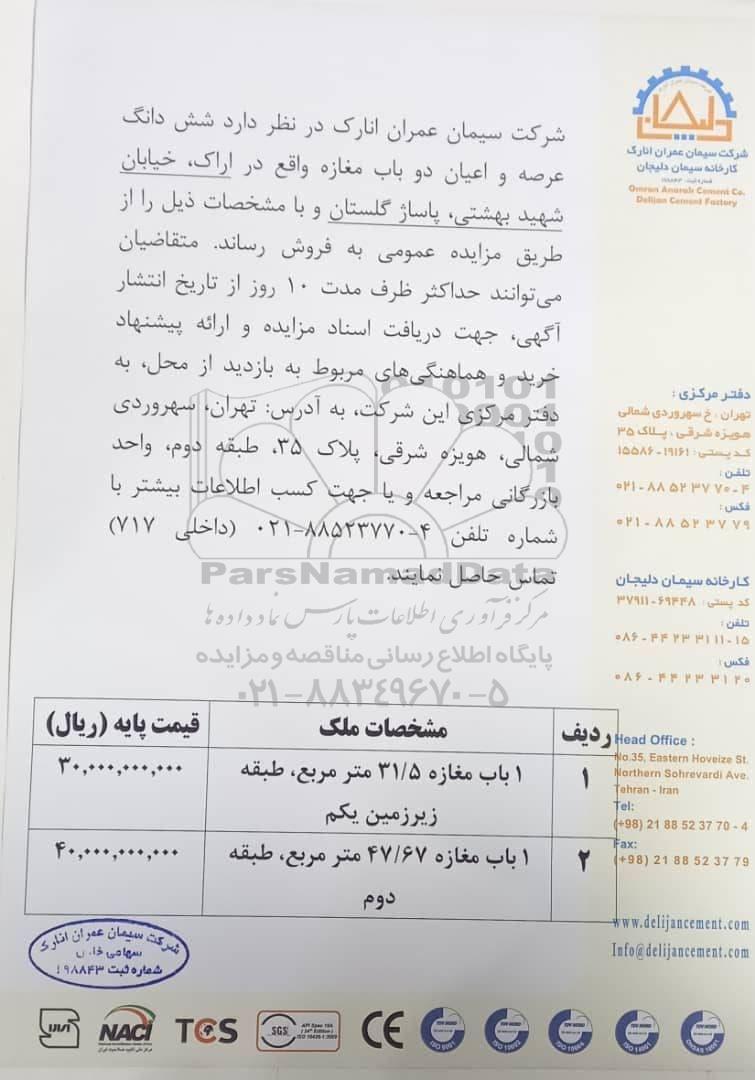 دلیجان
شرکت سیمان عمران انارک
کارخانه سیمان دلیجان
شماره ثبت: ۱۹۸۸۴۳
Omran Anarak Cement Co.
Delijan Cement Factory
شرکت سیمان عمران انارک در نظر دارد شش دانگ
عرصه و اعیان دو باب مغازه واقع در اراک، خیابان
شهید بهشتی، پاساژ گلستان و با مشخصات ذیل را از
طریق مزایده عمومی به فروش رساند. متقاضیان
می‌توانند حداکثر ظرف مدت ۱۰ روز از تاریخ انتشار
آگهی، جهت دریافت اسناد مزایده و ارائه پیشنهاد
خرید و هماهنگی‌های مربوط به بازدید از محل، به
دفتر مرکزی این شرکت، به آدرس: تهران، سهروردی
شمالی، هویزه شرقی، پلاک ۳۵، طبقه دوم، واحد
بازرگانی مراجعه و یا جهت کسب اطلاعات بیشتر با
شماره تلفن ۴-۸۸۵۲۳۷۷۰-۰۲۱ (داخلی ۷۱۷)
تماس حاصل نمایند.
ParsNamadData
مرکز فرآوری اطلاعات پارس نماد داده ها
پایگاه اطلاع رسانی مناقصه و مزایده
۰۲۱-۸۸۳۴۹۶۷۰-۵
ردیف مشخصات ملک قیمت پایه (ریال)
۱ ۱ باب مغازه ۳۱/۵ متر مربع، طبقه ۳۰,۰۰۰,۰۰۰,۰۰۰
زیرزمین یکم
۲ ۱ باب مغازه ۴۷/۶۷ متر مربع، طبقه ۴۰,۰۰۰,۰۰۰,۰۰۰
دوم
شرکت سیمان عمران انارک
سهامی خاص
شماره ثبت ۱۹۸۸۴۳
دفتر مرکزی :
تهران ، خ سهروردی شمالی
هویزه شرقی ، پلاک ۳۵
کد پستی : ۱۹۱۶۱-۱۵۵۸۶
تلفن :
۰۲۱-۸۸ ۵۲ ۳۷ ۷۰-۴
فکس :
۰۲۱-۸۸ ۵۲ ۳۷ ۷۹
کارخانه سیمان دلیجان
کد پستی : ۶۹۴۴۸-۳۷۹۱۱
تلفن :
۰۸۶-۴۴ ۲۳ ۳۱ ۱۱-۱۵
فکس :
۰۸۶-۴۴ ۲۳ ۳۱ ۲۰
Head Office :
No.35, Eastern Hoveize St.
Northern Sohrevardi Ave.
Tehran - Iran
Tel:
(+98) 21 88 52 37 70 - 4
Fax:
(+98) 21 88 52 37 79
www.delijancement.com
Info@delijancement.com
NACI
TCS
SGS
API Spec 10A
( 24th Edition )
ISO 10426-1:2009
CE
TÜV NORD
ISO 9001
TÜV NORD
ISO 10002
TÜV NORD
ISO 10004
TÜV NORD
ISO 14001
TÜV NORD
OHSAS 18001